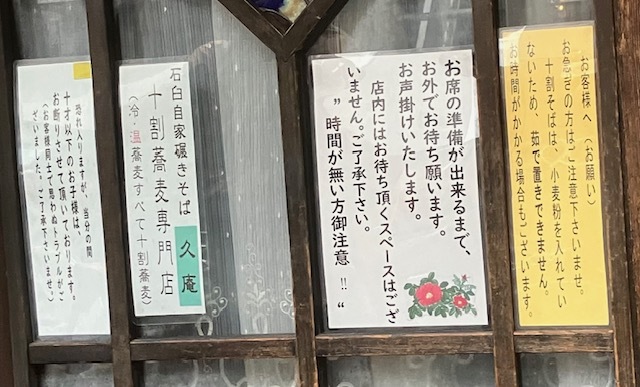 お客様へ(お願い)
お急ぎの方はご注意下さいませ。
十割そばは、小麦粉を入れてい
ないため、茹で置きできません。
お時間がかかる場合もございます。
お席の準備が出来るまで、
お外でお待ち願います。
お声掛けいたします。
店内にはお待ち頂くスペースはござ
いません。ご了承下さい。
〃時間が無い方御注意!!〃
石臼自家碾きそば 久庵
十割蕎麦専門店
(冷・温蕎麦すべて十割蕎麦)
恐れ入りますが、当分の間
十才以下のお子様は、
お断りさせて頂いております。
(お客様同士で思わぬトラブルがご
ざいました。ご了承下さいませ)